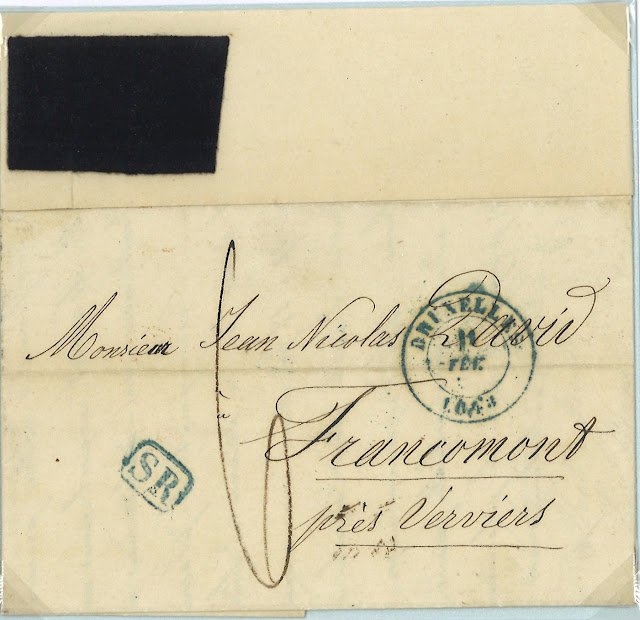 Monsieur Jean Nicolas David
à
Francomont
près Verviers
BRUXELLES
11
FEV.
1843
SR